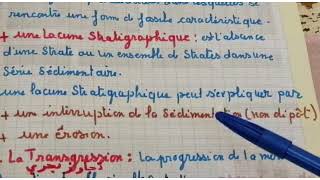 rencontre une form de fossile caractéristique.
+ une lacune Stratigraphique : est l'absence
d'une Strate ou un ensemble de Strates dans une
Série Sédimentaire.
une lacune Stratigraphique peut s'expliquer par
+ un interruption de la Sédimentation (non dépôt)
+ une érosion.
. La Transgression : La progression de la
تجاوز بحري